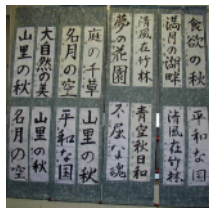 食欲の秋
満月の湖畔
清風在竹林
夢の花園
庭の千草
名月の空
大自然の美
山里の秋
平和な国
清風在竹林
青空秋日和
不屈な魂
山里の秋
平和な国
山里の秋
名月の空